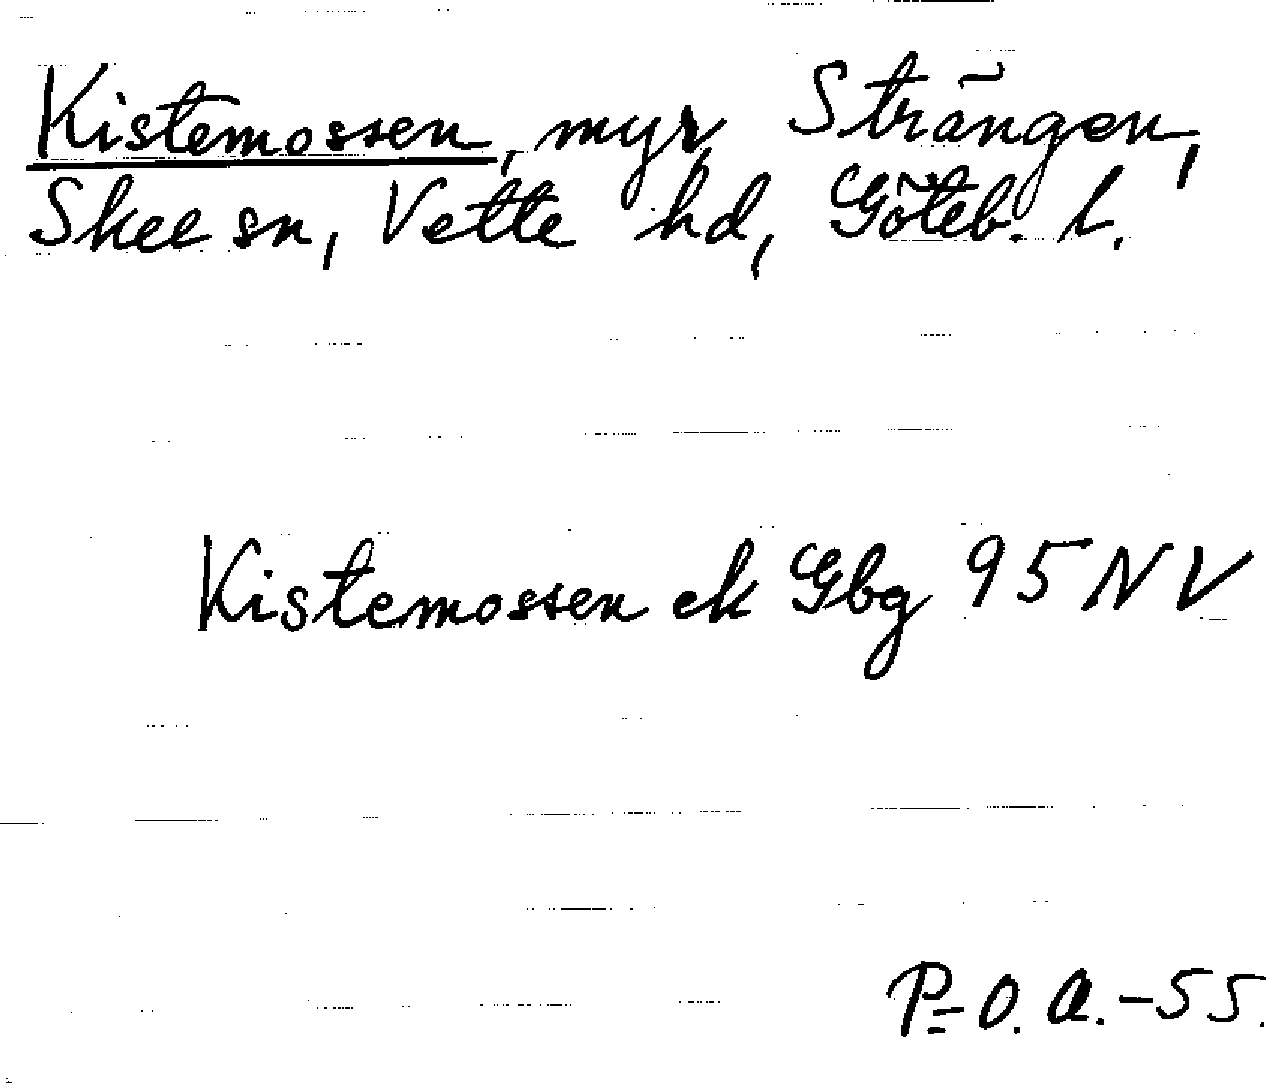 Kistemossen, myr, Strängen,
Skee sn, Vette hd, Göteb. l.
Kistemossen ek Gbg 95 NV
P-O. A.-55.